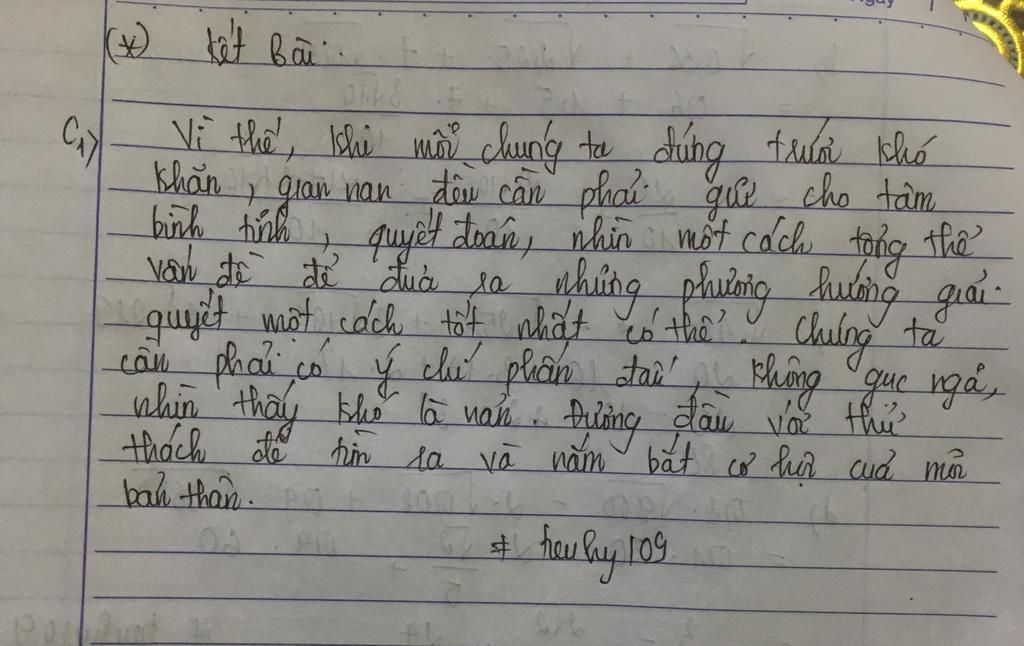 (*) Kết Bài:
C1) Vì thế, khi mỗi chúng ta đứng trước khó
khăn, gian nan đều cần phải giữ cho tâm
bình tĩnh, quyết đoán, nhìn một cách tổng thể
vấn đề để đưa ra những phương hướng giải
quyết một cách tốt nhất có thể. Chúng ta
cần phải có ý chí phấn đấu, không gục ngã,
nhìn thấy khó là nản. Đương đầu với thử
thách để tìm ra và nắm bắt cơ hội của mỗi
bản thân.
# heuhy109